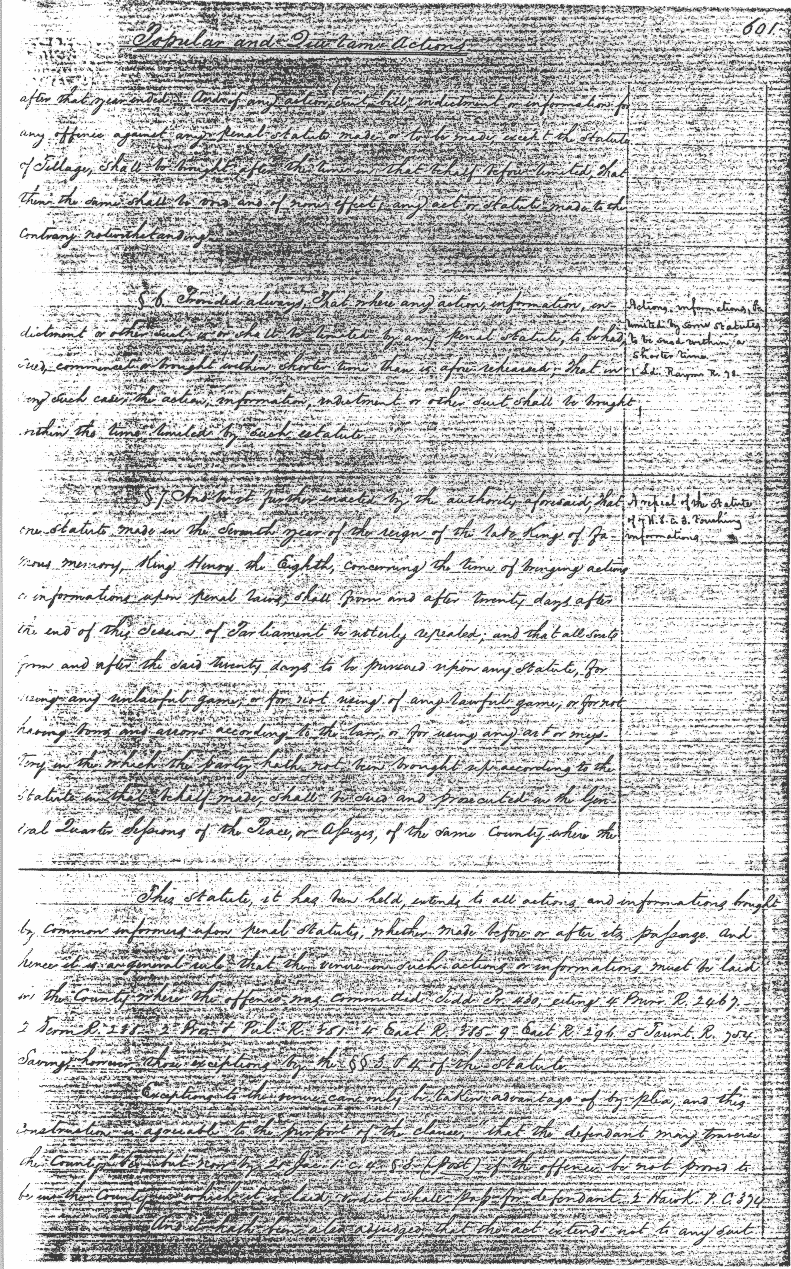 601
Popular and Qui tam Actions
after that year ended. And if any action, suit, bill, indictment or information for
any offence against any penal statute made, or to be made, except the statute
of Tillage, shall be brought after the time in that behalf before limited, that
then the same shall be void and of none effect; any act or statute made to the
contrary notwithstanding.
§ 6. Provided always, That where any action, information, in-
dictment or other suit is or shall be limited by any penal statute, to be had,
sued, commenced or brought within shorter time than is afore rehearsed; that in
any such case, the action, information, indictment or other suit shall be brought
within the time limited by such estatute
Actions, informations, &c
limited by some statutes
to be sued within a
shorter time.
1 Ld. Raym R. 78.
§ 7 And be it further enacted by the authority aforesaid, that
one statute made in the seventh year of the reign of the late King of fa-
mous memory, King Henry the Eighth, concerning the time of bringing actions
or informations upon penal laws, shall from and after twenty days after
the end of this session of Parliament be utterly repealed; and that all suits
from and after the said twenty days to be pursued upon any statute, for
using any unlawful game, or for not using of any lawful game, or for not
having bows and arrows according to the law, or for using any art or mys-
tery in the which the party hath not been brought up according to the
statute in that behalf made, shall be sued and prosecuted in the Gen-
eral Quarter Sessions of the Peace, or Assizes, of the same County where the
A repeal of the statute
of 7 H. 8. c. 3. touching
informations,
This statute, it has been held, extends to all actions and informations brought
by common informers upon penal statutes, whether made before or after its passage. And
hence it is a general rule that the venue in such actions or informations must be laid
in the County where the offence was committed Tidd Pr. 430, citing 4 Burr. R. 2467.
2 Term R. 238 2 Bos. & Pul. R. 381 4 East R. 385 9 East R. 296 5 Taunt. R. 754
Saving, however, those exceptions by the §§ 3 & 4 of the statute
Exceptions to the venue can only be taken advantage of by plea, and this
construction is agreeable to the purport of the clause, "that the defendant may traverse
the County but now by 21 Jac. 1. c. 4. § 3 (Post) if the offence be not proved to
be in the County in which it is laid verdict shall pass for defendant, 2 Hawk. P.C. 394
And it hath been also adjudged, that the act extends not to any suit